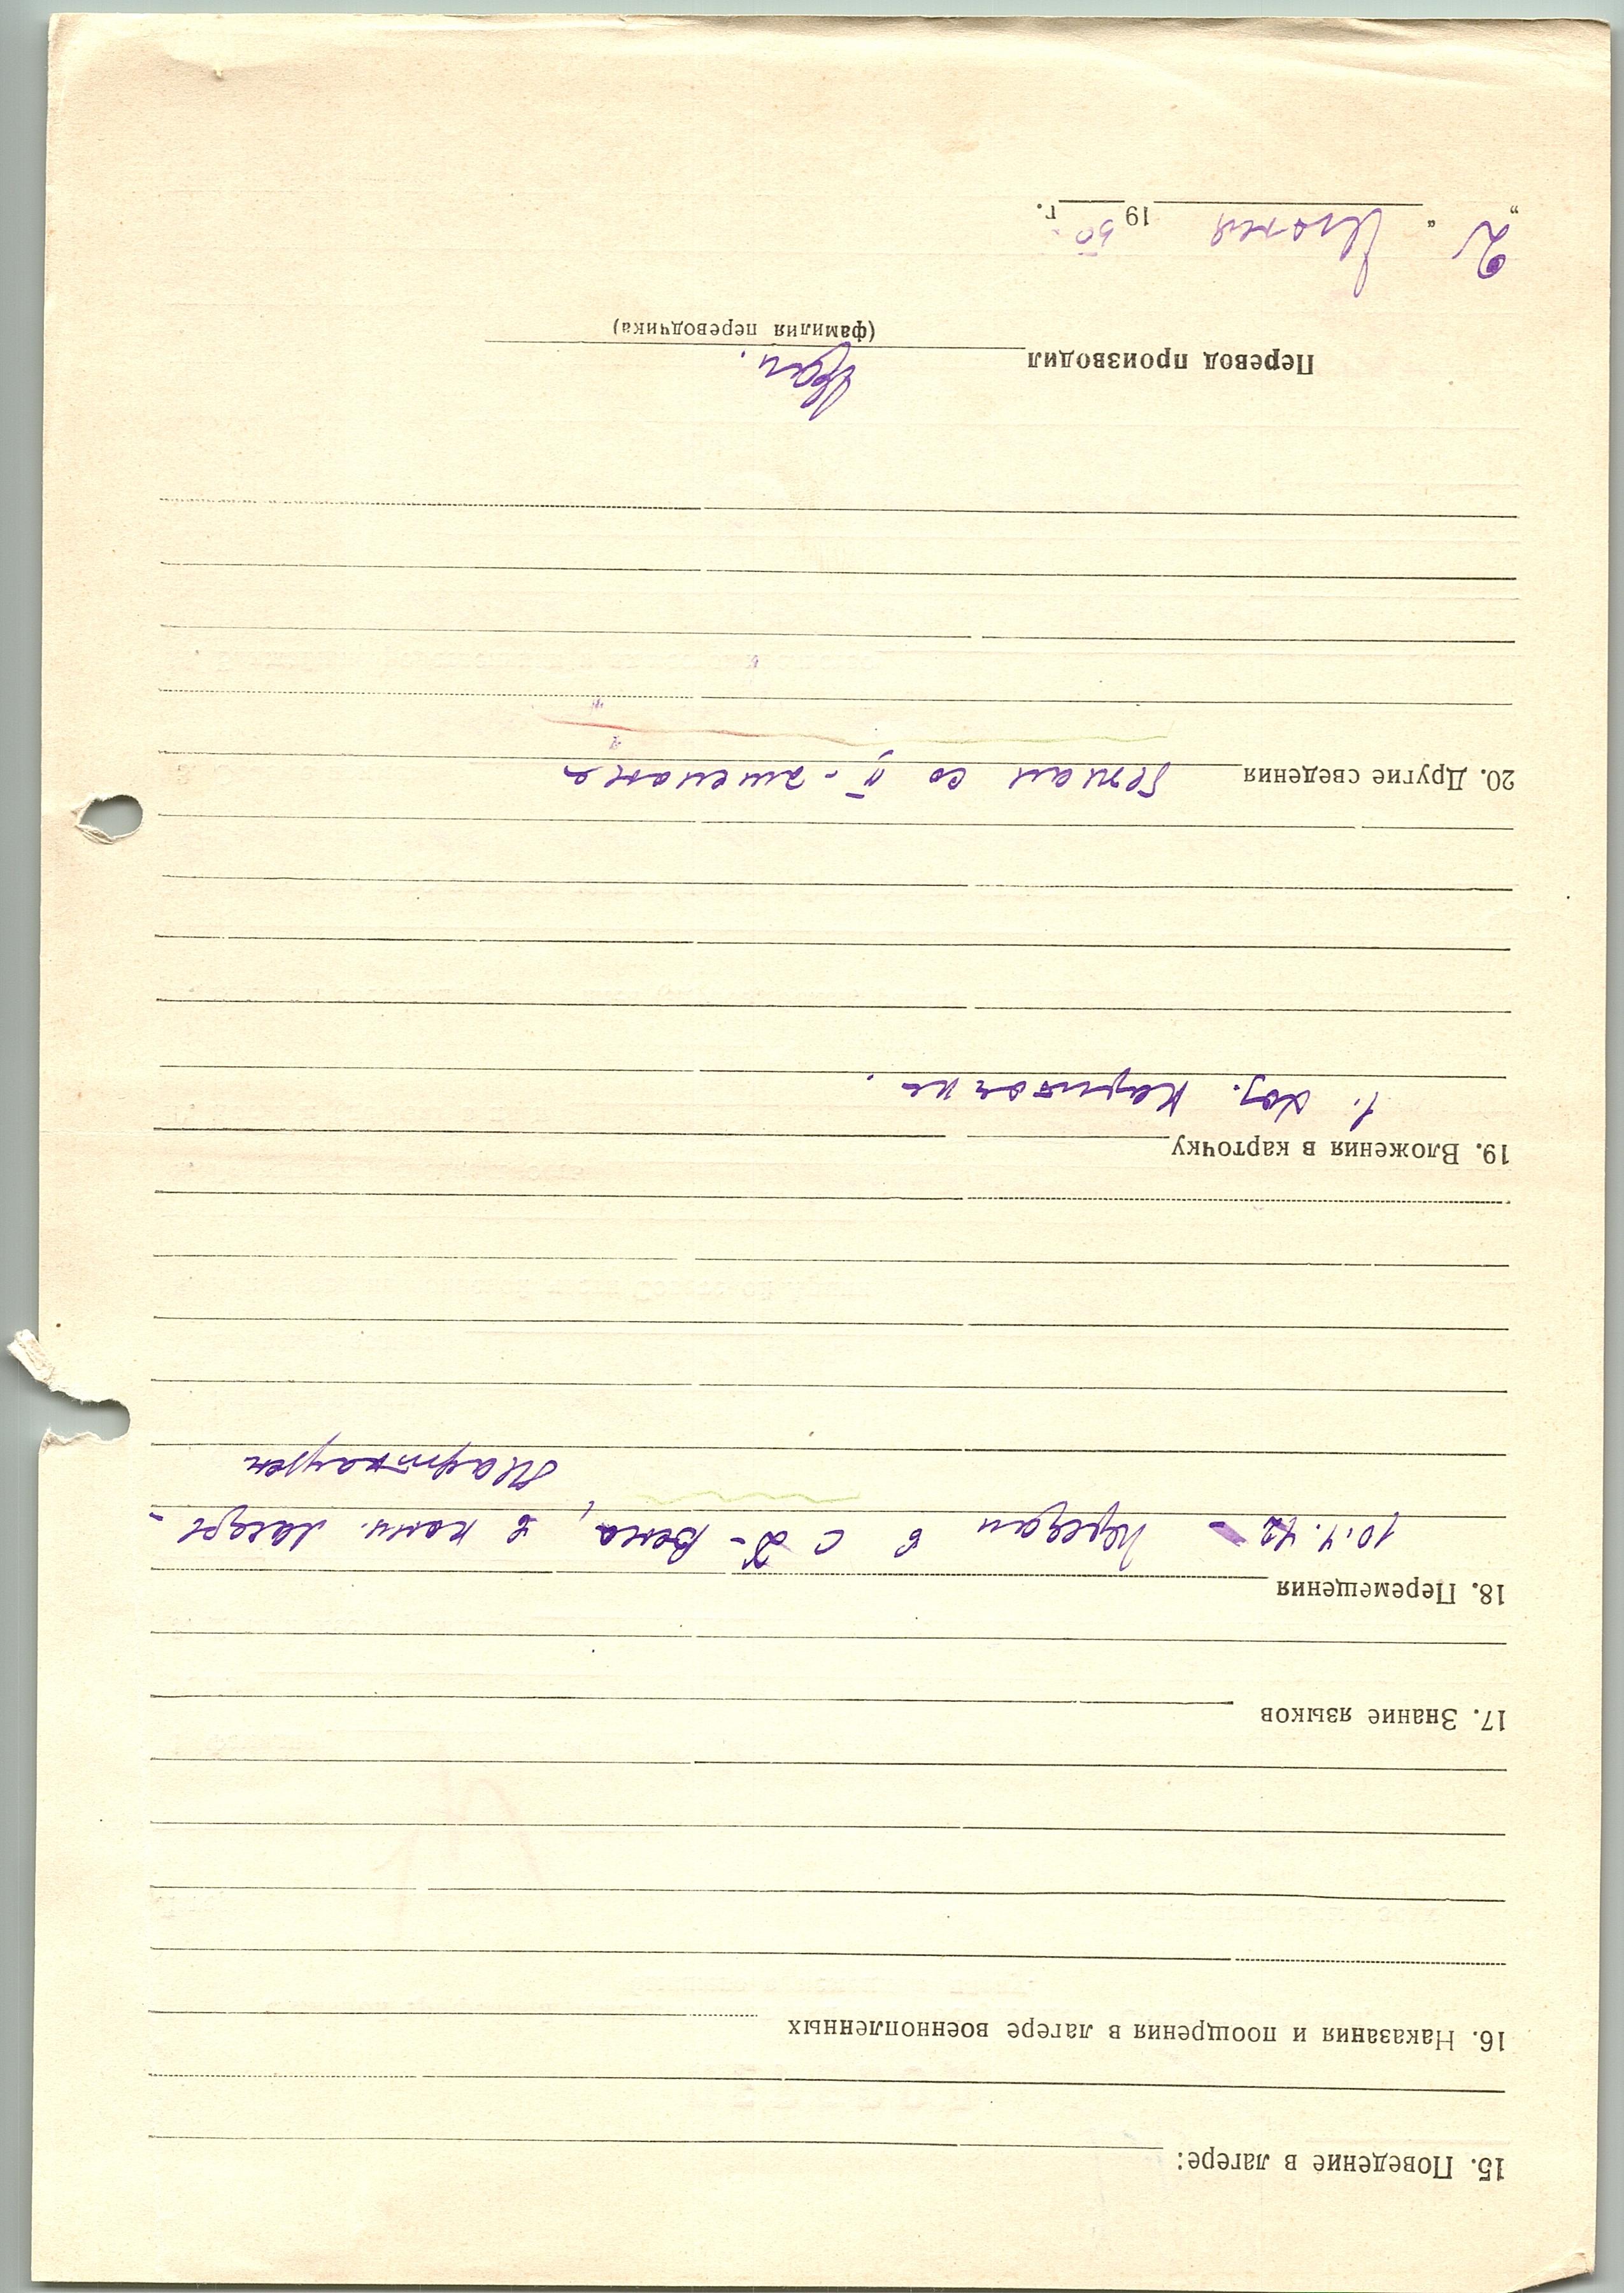 15. Поведение в лагере:
16. Наказания и поощрения в лагере военнопленных
17. Знание языков
18. Перемещения
10.4.42 - Передан в с д - Вена, в конц. лагерь -
Маутхаузен
19. Вложения в карточку
1. карточка.
20. Другие сведения
бежал со
Перевод производил
(фамилия переводчика)
„2“ Июня 1950 г.